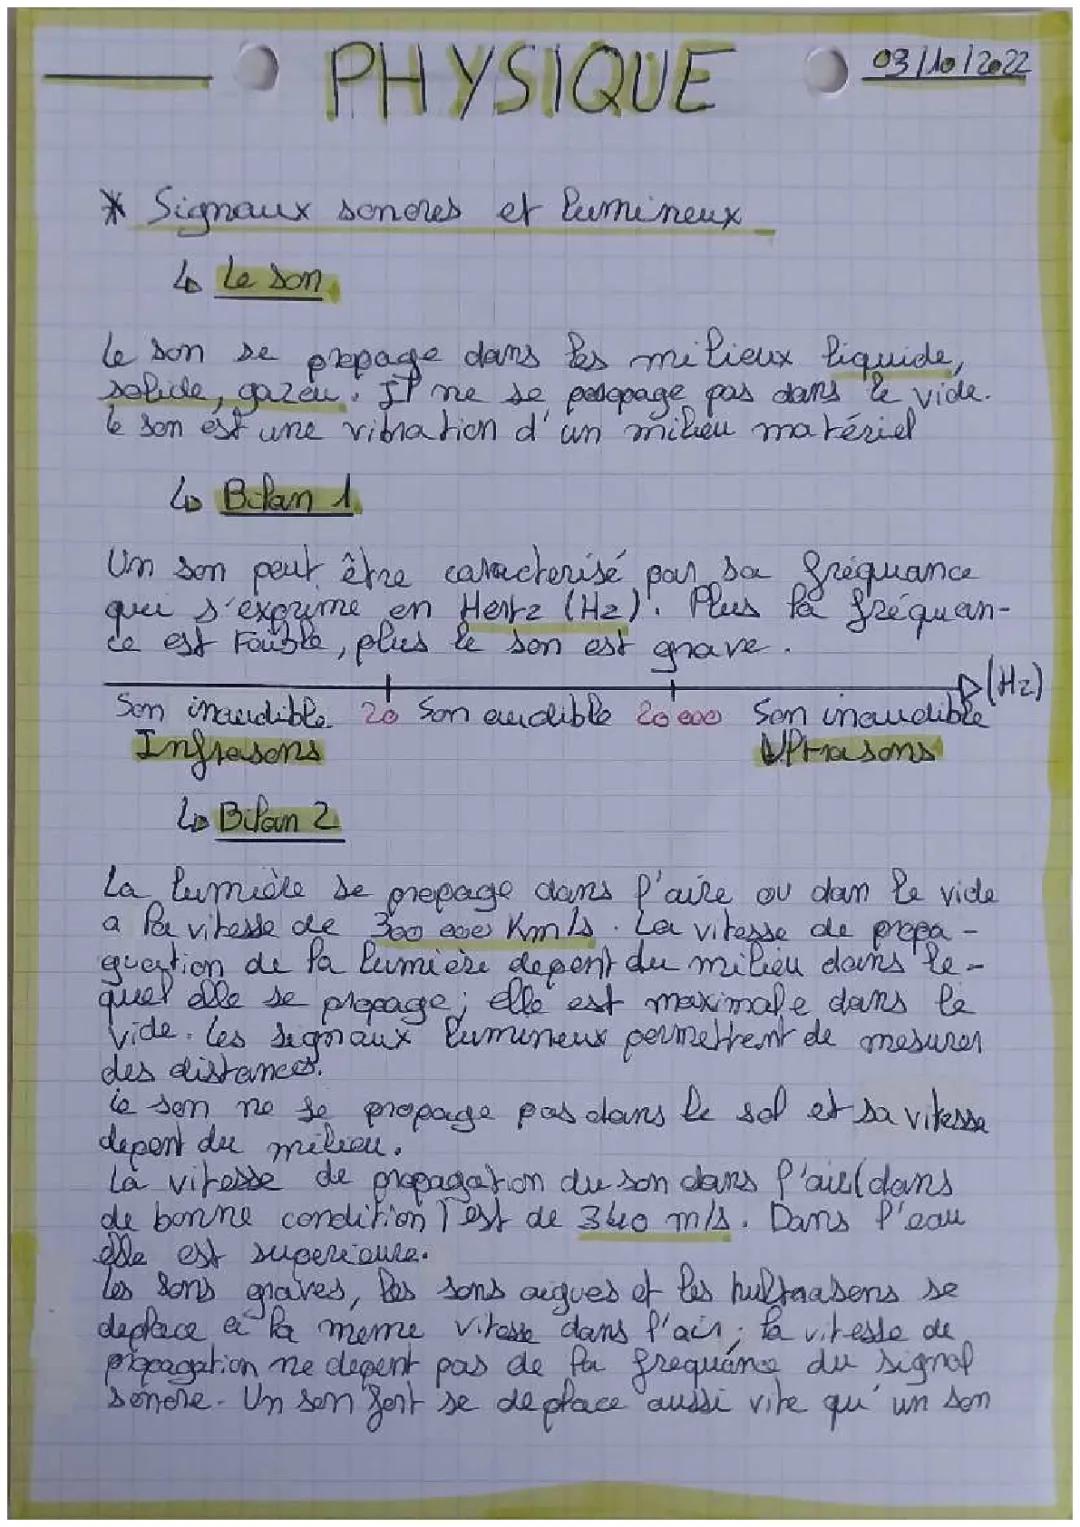 PHYSIQUE
03/10/2022
* Signaux sonores et lumineux
↳ Le son
Le son se propage dans les milieux liquide,
solide, gazeu. Il ne se propage pas dans le vide.
Le son est une vibration d'un milieu matériel
↳ Bilan 1
Un son peut être caracterisé par sa fréquance
qui s'exprime en Hertz (Hz). Plus la fréquan-
ce est faible, plus le son est grave.
(Hz)
Son inaudible 20 Son audible 20 000 Son inaudible
Infrasons Ultrasons
↳ Bilan 2
La lumière se propage dans l'aire ou dan le vide
a la vitesse de 300 000 Km/s. La vitesse de propa-
guation de la lumière depent du milieu dans le-
quel elle se propage; elle est maximale dans le
vide. Les signaux lumineux permettent de mesurer
des distances.
Le son ne se propage pas dans le sol et sa vitesse
depent du milieu.
La vitesse de propagation du son dans l'air (dans
de bonne condition) est de 340 m/s. Dans l'eau
elle est superieure.
Les sons graves, les sons aigues et les hultrasons se
deplace a la meme vitesse dans l'air; la vitesse de
propagation ne depent pas de la frequance du signal
sonore. Un son fort se deplace aussi vite qu'un son